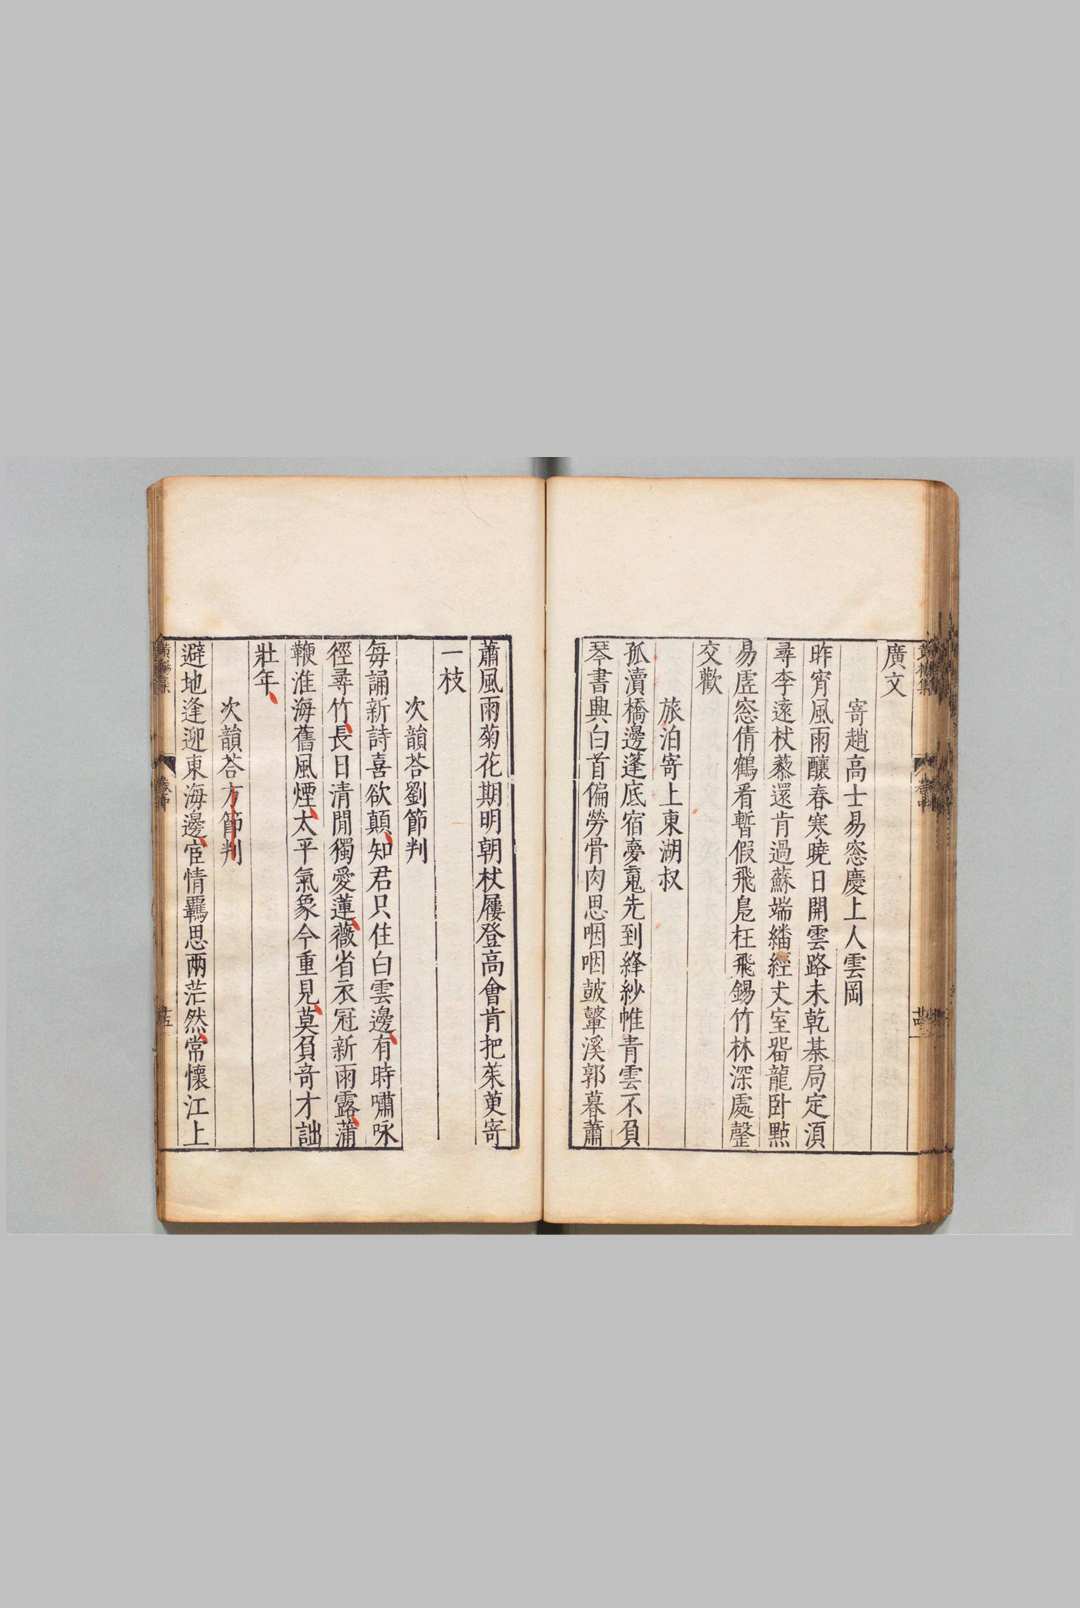 廣文
寄趙高士易窓慶上人雲岡
昨宵風雨釀春寒曉日開雲路未乾棊局定湏
尋李遠杖藜還肯過蘇端繙經丈室畱龍卧㸃
易虗窓倩鶴看暫假飛鳧枉飛錫竹林深處罄
交歡
旅泊寄上東湖叔
孤瀆橋邊蓬底宿夣䰟先到絳紗帷青雲不負
琴書興白首偏勞骨肉思咽咽皷鼙溪郭暮蕭
蕭風雨菊花期明朝杖屨登高會肯把茱萸寄
一枝
次韻荅劉節判
每誦新詩喜欲顛知君只住白雲邊有時嘯咏
徑尋竹長日清閒獨愛蓮薇省衣冠新雨露蒲
鞭淮海舊風煙太平氣象今重見莫負竒才詘
壯年
次韻荅方節判
避地逢迎東海邊宦情羈思兩茫然常懷江上
卷中
卷中